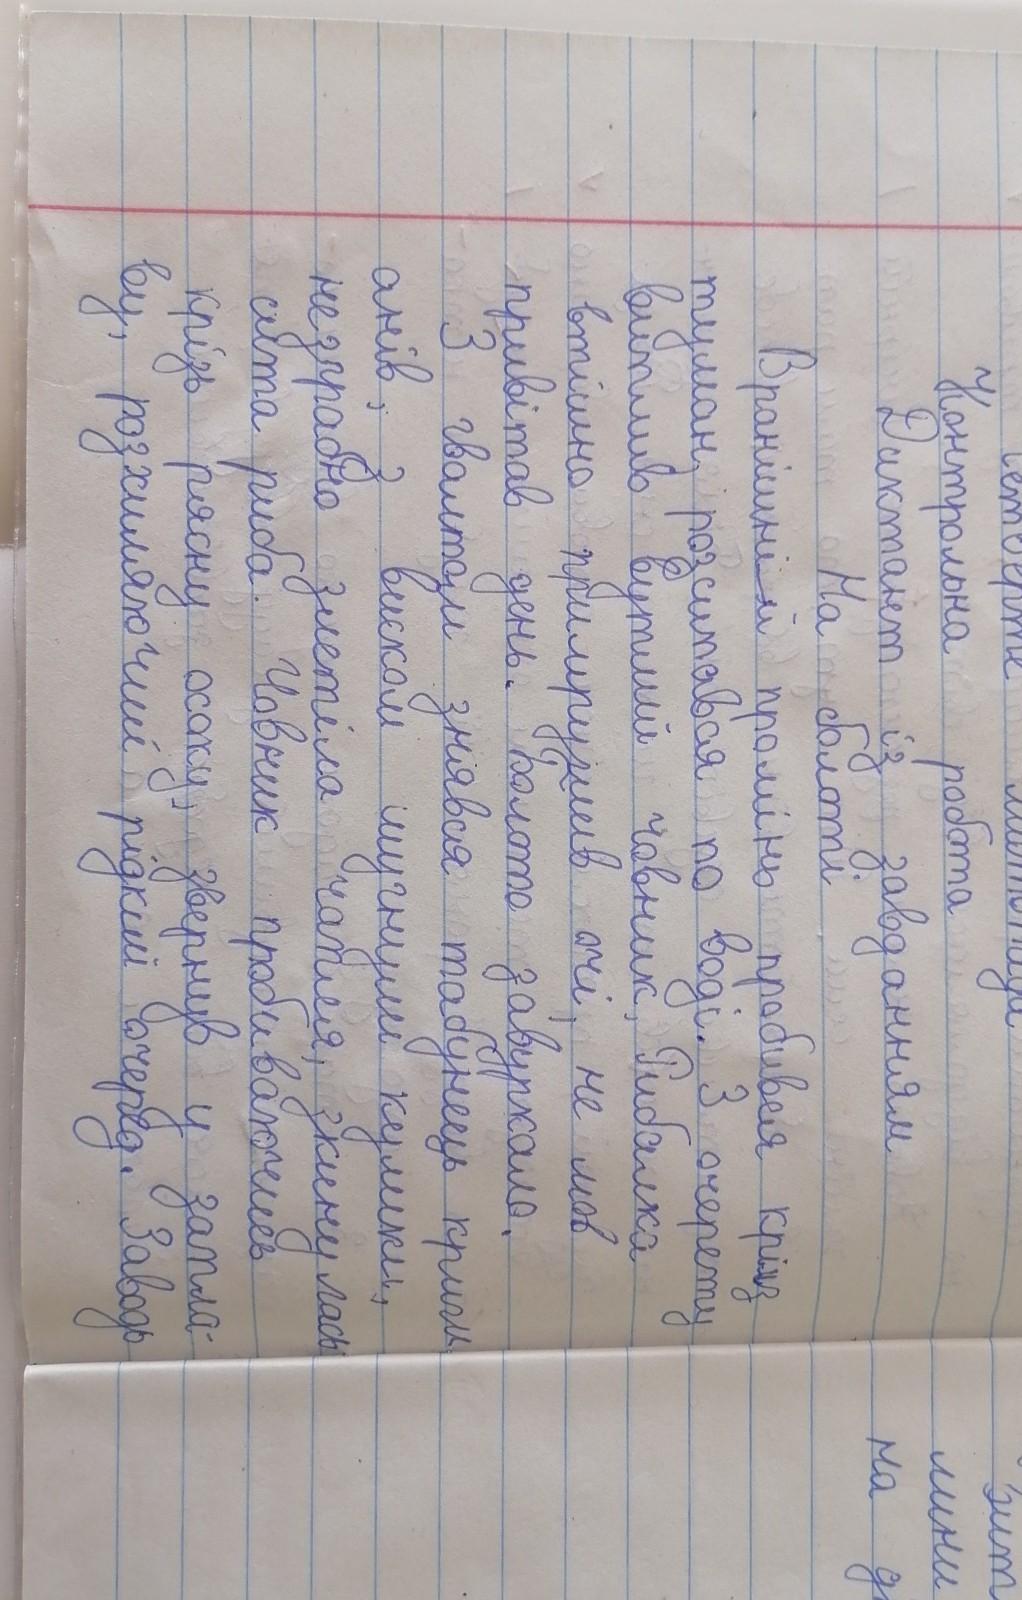 четверте лютого
Контрольна робота
Диктант із завданням
На болоті
Вранішній промінь пробився крізь
туман, розсипався по воді. З очерету
виплив вутлий човник, Рибалка
втішно примружив очі, не мов
привітав день. Болото завуркало.
З гвалтом знявся табунець крим
онів, з виском шугнули кулики,
незграбно злетіла чапля, зкинулась
сита риба. Човник пробиваючись
крізь рясну осоку, звернув у запла-
ву, розхиляючий рідкий очеред. Заводь
жит
лини
на д